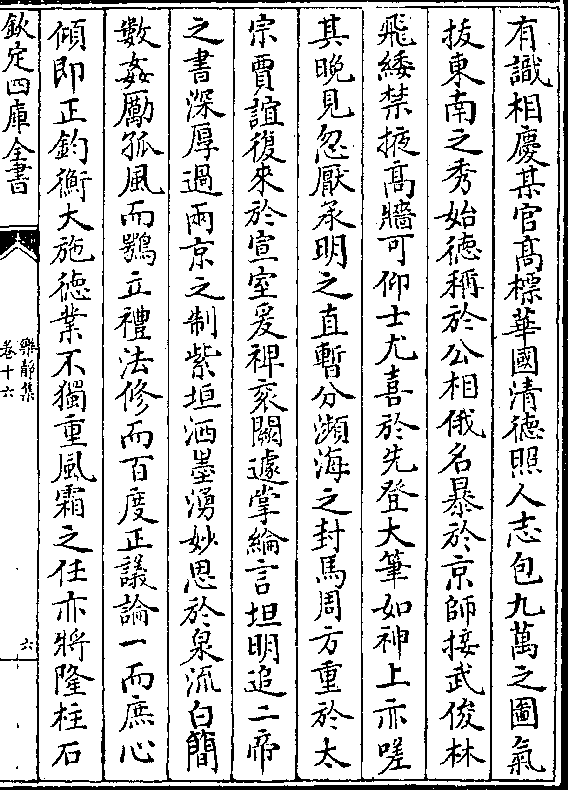 有識相慶某官髙標華國清德照人志包九萬之圖氣
抜東南之秀始徳稱於公相俄名暴於京師接武俊林
飛緌禁掖髙牆可仰士尤喜於先登大筆如神上亦嗟
其晚見忽厭承明之直暫分瀕海之封馬周方重於太
宗賈誼復來於宣室爰裨衮闕遽掌綸言坦明追二帝
之書深厚過兩京之制紫垣洒墨湧妙思於泉流白簡
數姦勵孤風而鶚立禮法修而百度正議論一而庶心
傾即正鈞衡大施徳業不獨重風霜之任亦將隆柱石
欽定四庫全書
樂静集
卷十六
六